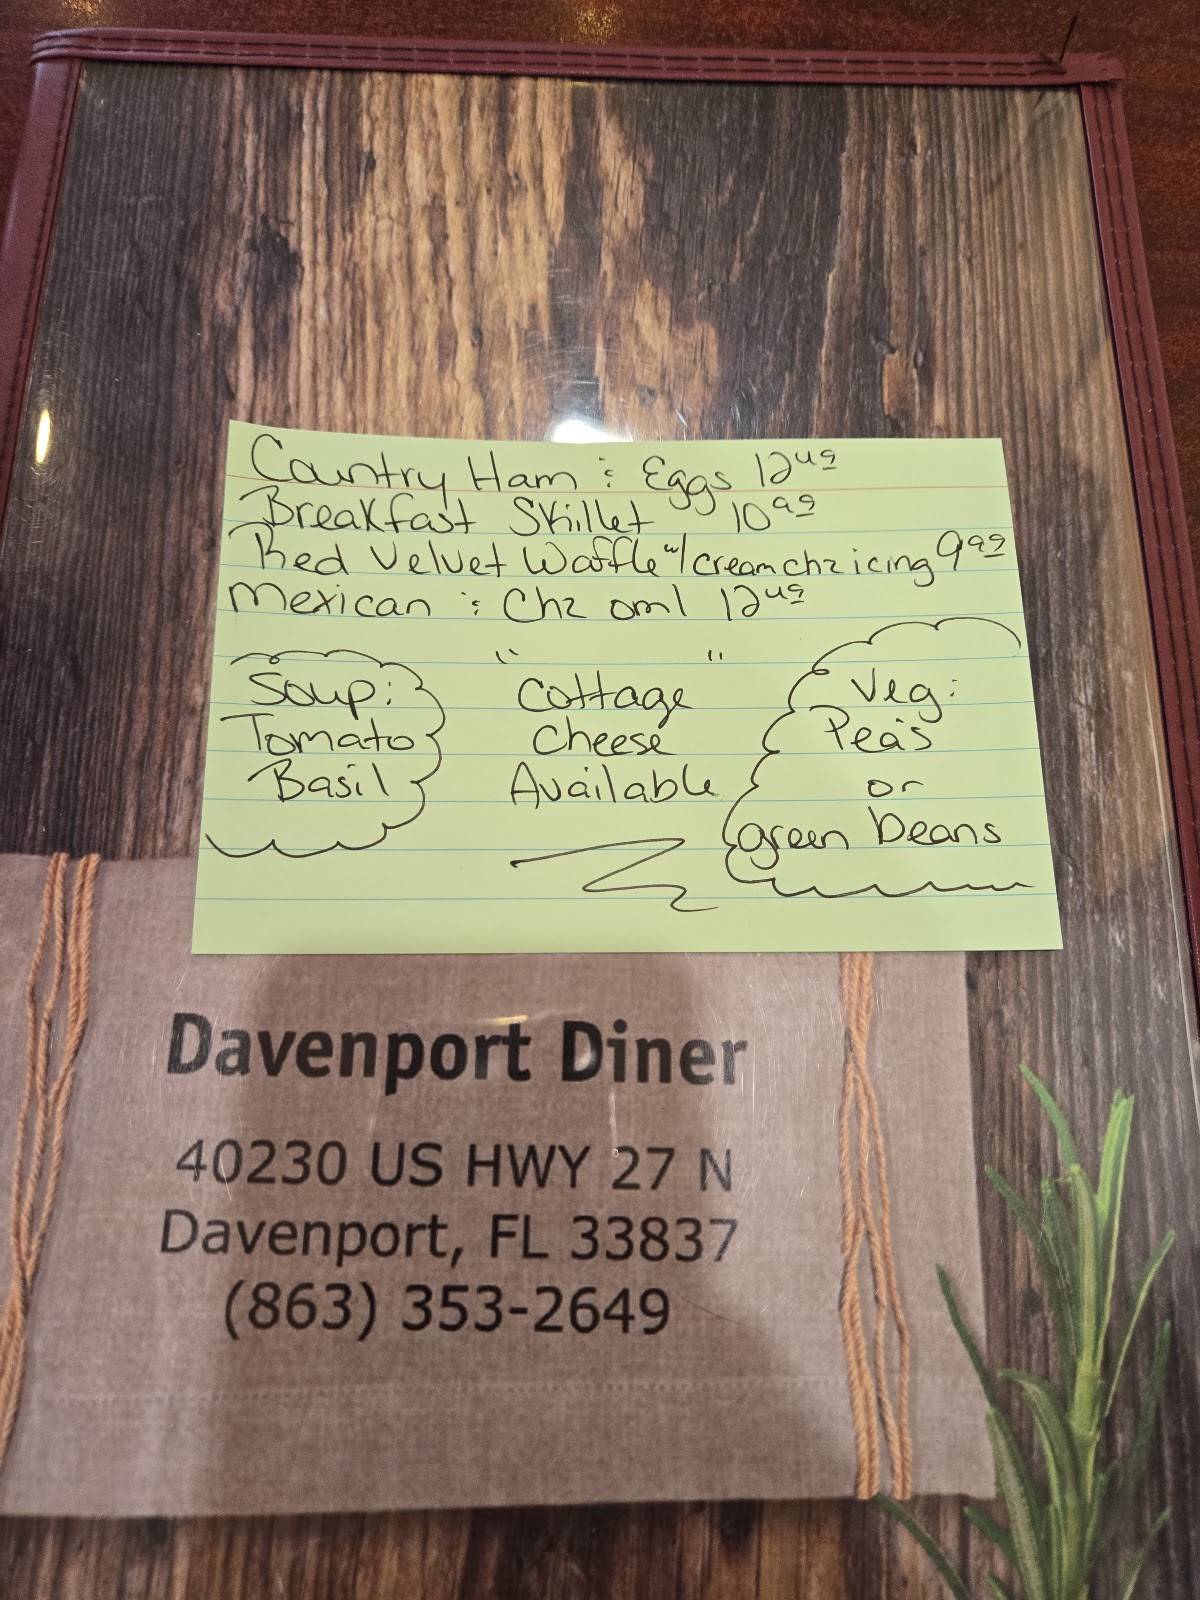 Country Ham & Eggs 12.49
Breakfast Skillet 10.99
Red Velvet Waffle w/ cream chz icing 9.99
Mexican & Chz oml 12.49
Soup:
Tomato
Basil
"Cottage"
Cheese
Available
Veg:
Pea's
or
green beans
Davenport Diner
40230 US HWY 27 N
Davenport, FL 33837
(863) 353-2649